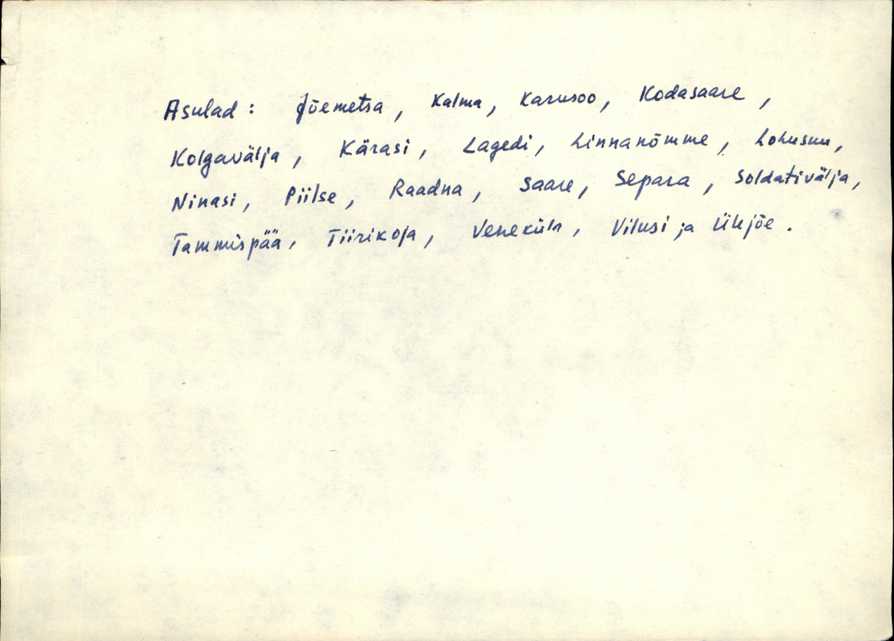 Asulad: Jõemetsa, Kalma, Karusoo, Kodasaare,
Kolgavälja, Kärasi, Lagedi, Linnanõmme, Lohusuu,
Ninasi, Piilse, Raadna, Saare, Separa, Soldativälja,
Tammispää, Tiirikoja, Veneküla, Vilusi ja Ühjõe.